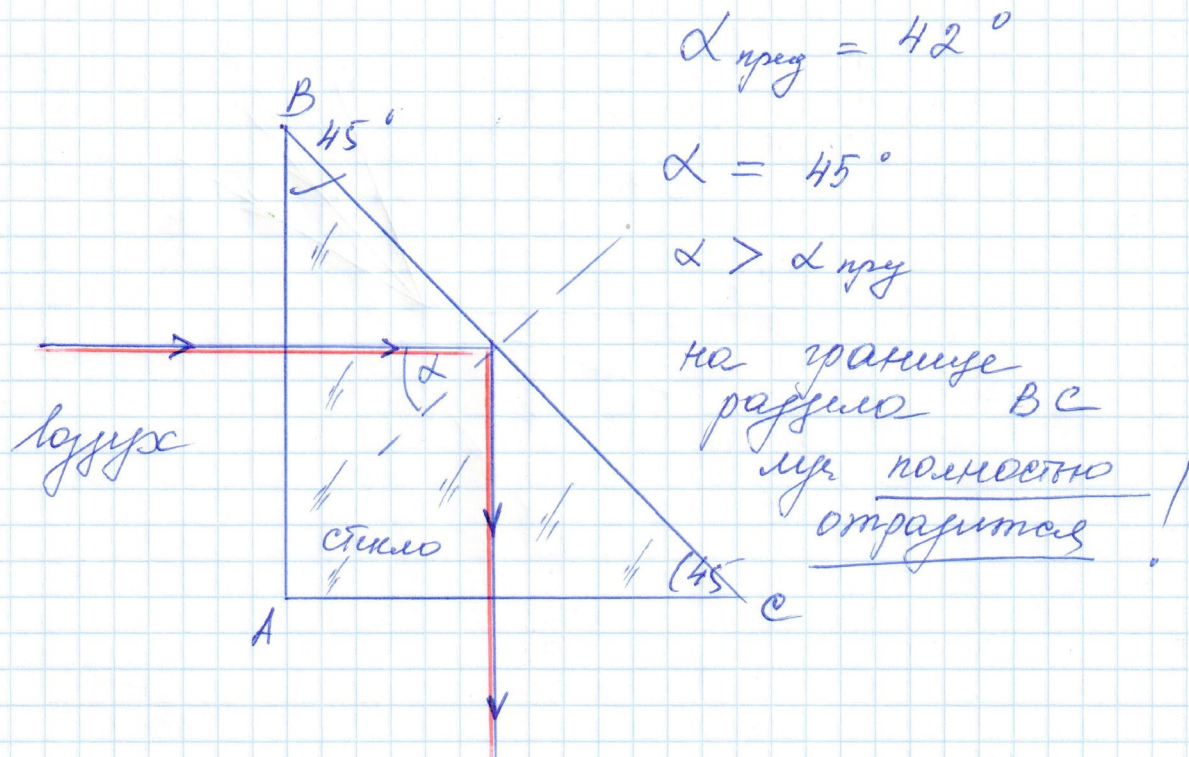 α пред = 42°
B
45°
α = 45°
α > α пред
α
на границе
раздела BC
луч полностью
отразится !
воздух
стекло
(45
A
C